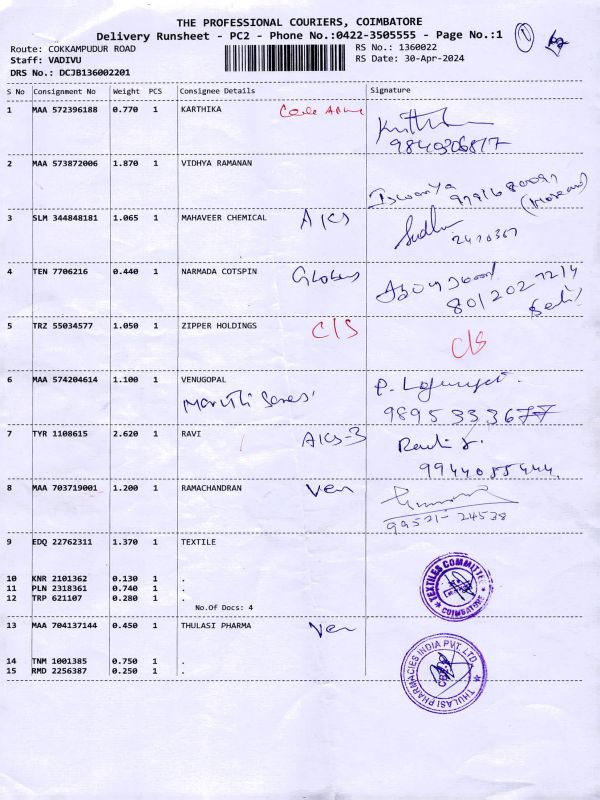 THE PROFESSIONAL COURIERS, COIMBATORE
Delivery Runsheet - PC2 - Phone No.:0422-3505555 - Page No.:1
Route: COKKAMPUDUR ROAD
RS No.: 1360022
Staff: VADIVU
RS Date: 30-Apr-2024
DRS No.: DCJB136002201
S No Consignment No Weight PCS Consignee Details Signature
1 MAA 572396188 0.770 1 KARTHIKA
9840306817
2 MAA 573872006 1.870 1 VIDHYA RAMANAN
Iswarya
3 SLM 344848181 1.065 1 MAHAVEER CHEMICAL AKS
Sudha
2470367
4 TEN 7706216 0.440 1 NARMADA COTSPIN
5 TRZ 55034577 1.050 1 ZIPPER HOLDINGS C/S C/S
6 MAA 574204614 1.100 1 VENUGOPAL P.
Maruthi 9895333677
7 TYR 1108615 2.620 1 RAVI AKS-3 Ravi
9944055444
8 MAA 703719001 1.200 1 RAMACHANDRAN Ven
99521-24538
9 EDQ 22762311 1.370 1 TEXTILE
10 KNR 2101362 0.130 1 .
11 PLN 2318361 0.740 1 .
12 TRP 621107 0.280 1 .
No.Of Docs: 4
TEXTILES COMMITTEE
COIMBATORE
13 MAA 704137144 0.450 1 THULASI PHARMA Ven
14 TNM 1001385 0.750 1 .
15 RMD 2256387 0.250 1 .
THULASI PHARMACIES INDIA PVT. LTD.